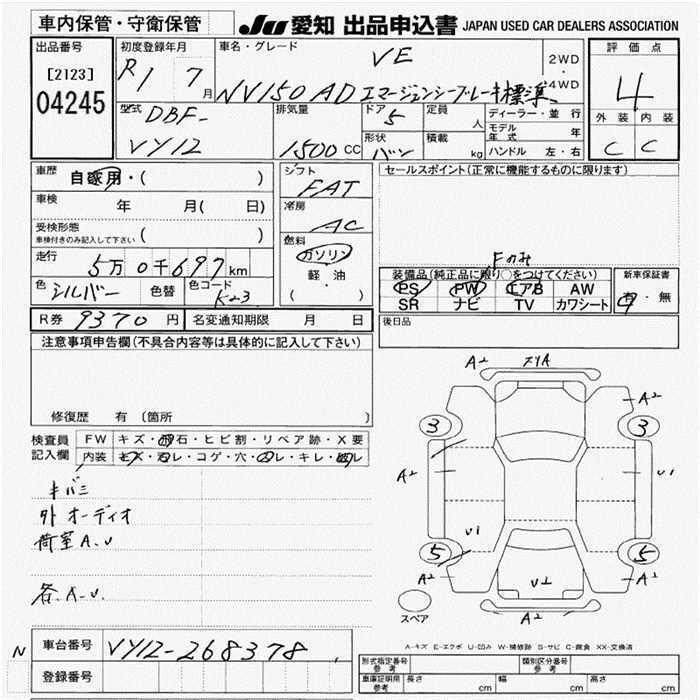 車内保管・守衛保管
JU 愛知 出品申込書 JAPAN USED CAR DEALERS ASSOCIATION
出品番号
[2123]
04245
初度登録年月
R1 7月
車名・グレード
VE
NV150 AD エマージェンシーブレーキ標準
2WD
・
4WD
評価点
4
外装 内装
C C
型式
DBF-
VY12
排気量
1500 CC
ドア 5
形状
バン
定員 人
積載 kg
ディーラー・並行
モデル年式 年
ハンドル 左・右
車歴
自家用・( )
車検 年 月( 日)
受検形態
車検付きのみ記入して下さい ( )
走行 5万0千697km
色 シルバー 色替 色コード K23
シフト
FAT
冷房
AC
燃料
ガソリン
軽・油
( )
セールスポイント(正常に機能するものに限ります)
Fのみ
装備品(純正品に限り○をつけてください)
PS PW エアB AW
SR ナビ TV カワシート
新車保証書
有・無
後日品
R券 9370円 名変通知期限 月 日
注意事項申告欄(不具合内容等は具体的に記入して下さい)
修復歴 有(箇所 )
検査員
記入欄
FW キズ・飛石・ヒビ割・リペア跡・X要
内装 キズ・汚レ・コゲ・穴・スレ・キレ・
キバミ
外 オーディオ
荷室 A.U
各 A.U
A2 XYA
A2
3 3
A2 U1
U1
5 5
A2 U2 A2
A2
スペア
A-キズ E-エクボ U-凹み W-補修跡 S-サビ C-腐食 XX-交換済
N 車台番号 VY12-268378
登録番号
型式指定番号 参考
類別区分番号 参考
車庫証明用 参考 長さ cm 幅 cm 高さ cm